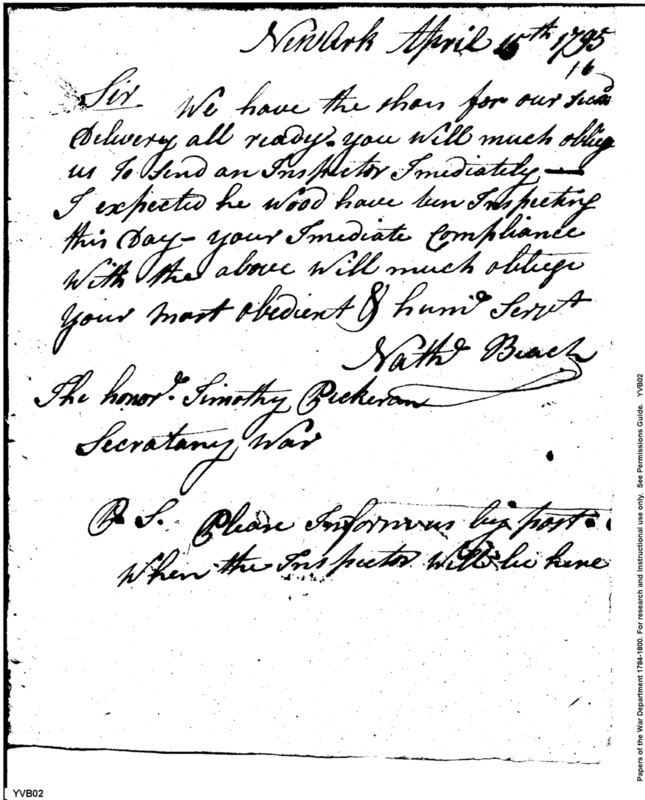 Newark April 15th 1795
16
Sir. We have the shoes for our secnd
Delivery all ready - you will much obliege
us To Send an Inspector Imediately —
I expected he wood have ben Inspecting
this Day - your Imediate Compliance
With the above will much obliege
your most obedient & humle Servt
Nathl Beach
The honorl. Timothy Pickeran
Secratany War
P S. Please Inform us by post
When the Inspector will be here
Papers of the War Department 1784-1800. For research and instructional use only. See Permissions Guide. YVB02
YVB02